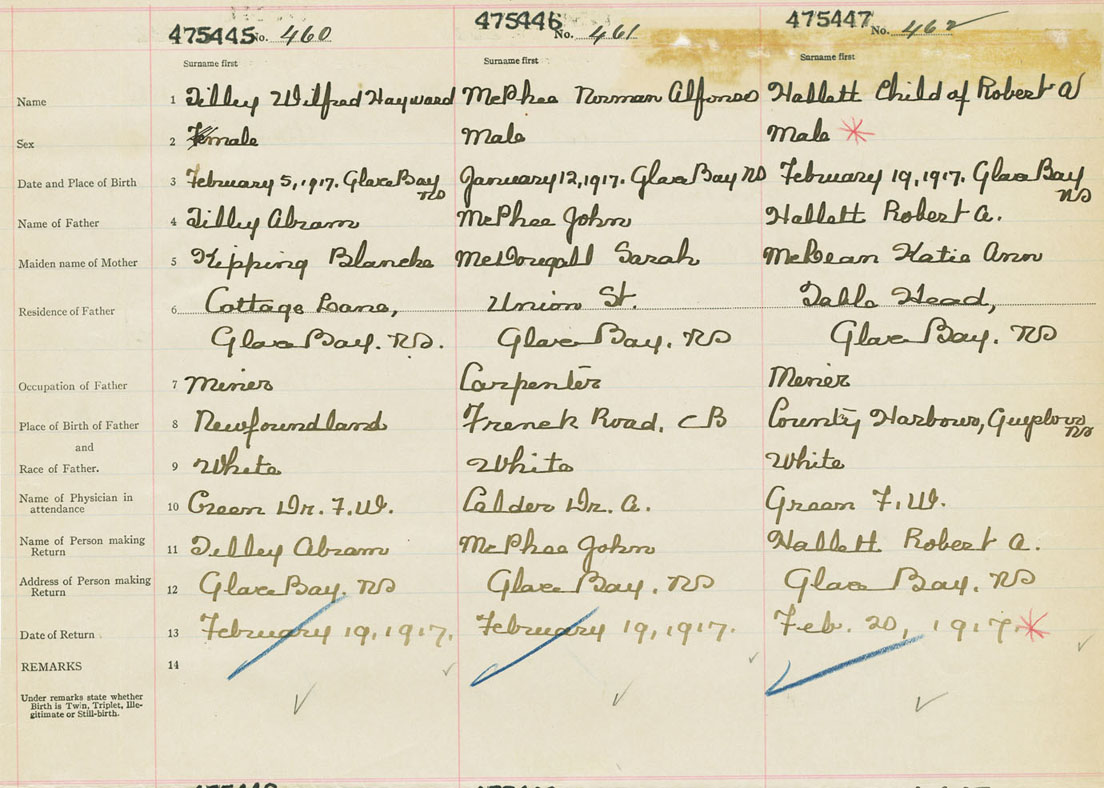 475445 No. 460 475446 No. 461 475447 No. 462
Surname first Surname first Surname first
Name 1 Tilley Wilfred Hayward McPhee Norman Alfonso Hallett Child of Robert A
Sex 2 male Male Male
Date and Place of Birth 3 February 5, 1917. Glace Bay NS January 12, 1917. Glace Bay NS February 19, 1917. Glace Bay NS
Name of Father 4 Tilley Abram McPhee John Hallett Robert A.
Maiden name of Mother 5 Kipping Blanche McDougall Sarah McBean Katie Ann
Residence of Father 6 Cottage Lane, Union St. Table Head,
Glace Bay. NS. Glace Bay, NS Glace Bay, NS
Occupation of Father 7 Miner Carpenter Miner
Place of Birth of Father 8 Newfoundland French Road, CB County Harbour, NS
and
Race of Father. 9 White White White
Name of Physician in
attendance 10 Green Dr. F.W. Calder Dr. A. Green F.W.
Name of Person making
Return 11 Tilley Abram McPhee John Hallett Robert A.
Address of Person making
Return 12 Glace Bay, NS Glace Bay, NS Glace Bay, NS
Date of Return 13 February 19, 1917. February 19, 1917. Feb. 20, 1917.
REMARKS 14
Under remarks state whether
Birth is Twin, Triplet, Ille-
gitimate or Still-birth.